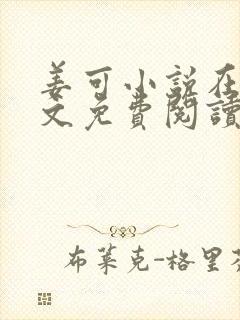 姜可小说在
文免費閱讀
布萊克-格里芬